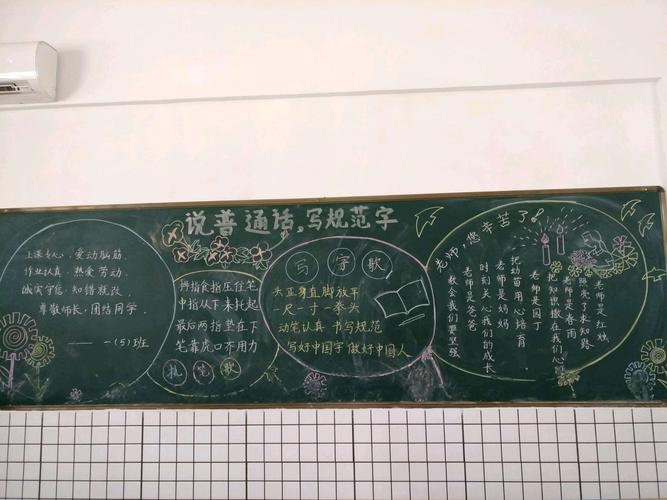 说普通话,写规范字
上课专心，爱动脑筋，
作业认真，热爱劳动，
诚实守信，知错就改，
尊敬师长，团结同学。
——一(5)班
拇指食指压住笔
中指从下来托起
最后两指垫在下
笔靠虎口不用力
执笔歌
写字歌
头正身直脚放平
一尺一寸一拳头
动笔认真 书写规范
写好中国字 做好中国人
老师，您辛苦了！
老师是红烛
照亮了求知路
老师是春雨
把知识撒在我们心
老师是园丁
把幼苗用心培育
老师是妈妈
时刻关心我们的成长
老师是爸爸
教会我们要坚强